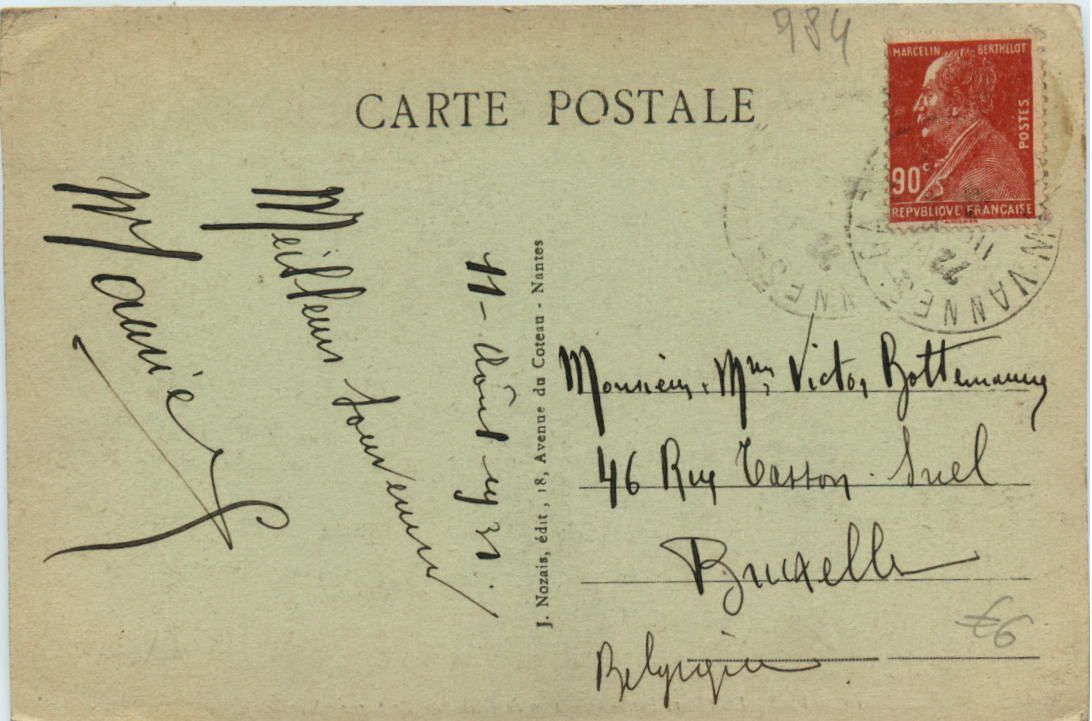 984
CARTE POSTALE
MARCELIN BERTHELOT
POSTES
90c
REPVBLIQVE FRANÇAISE
VANNES
Meilleur souvenir
11 - Août
J. Nozais, édit, 18, Avenue du Coteau - Nantes
Monsieur, Mme Victor
46 Rue Tasson-Snel
Bruxelle
Belgique
£6